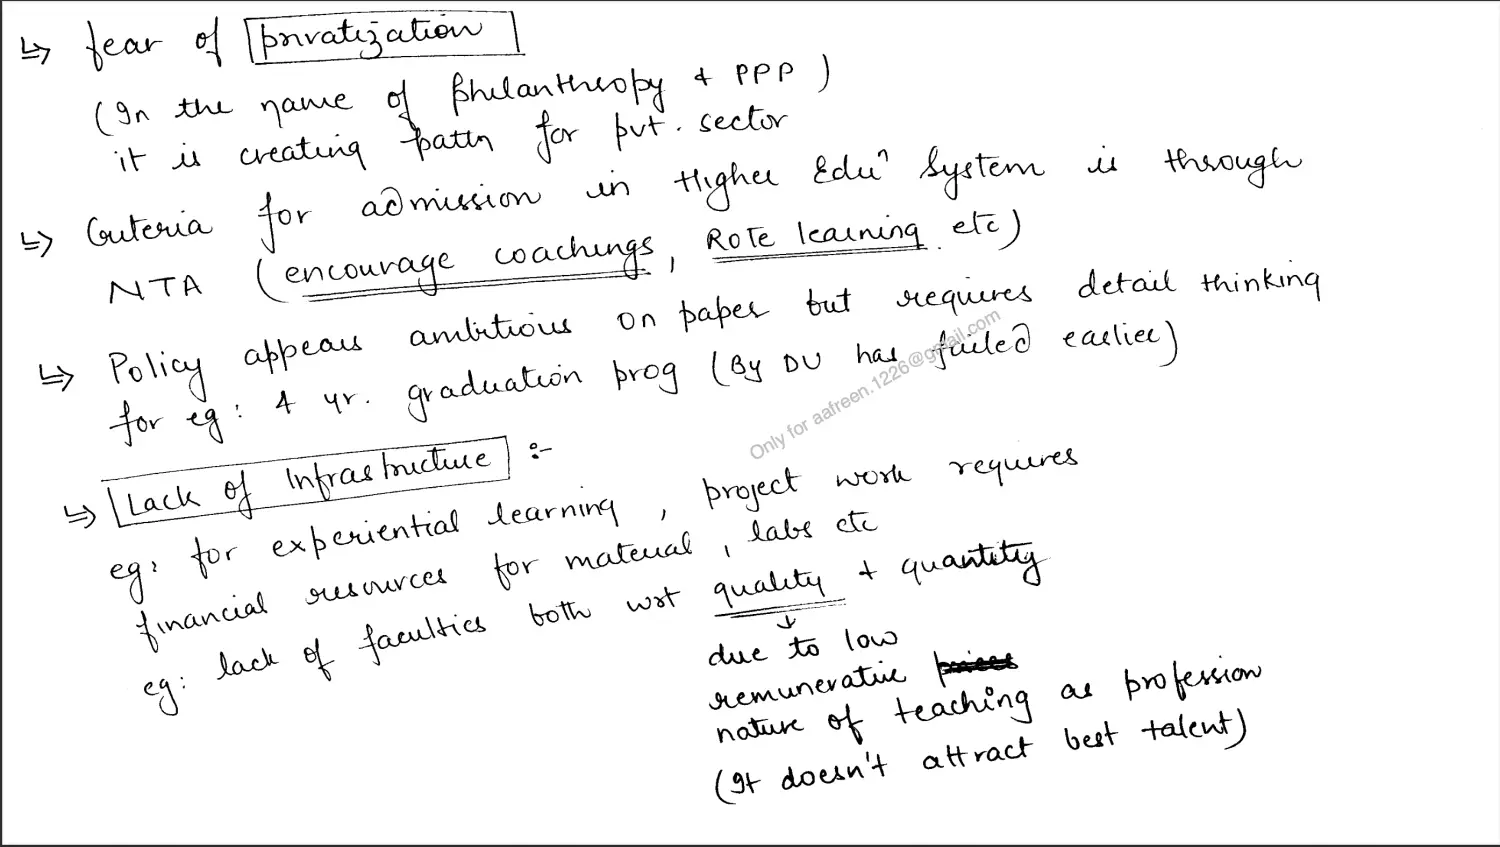 ↳ fear of privatization
(In the name of philanthropy + PPP)
it is creating path for pvt. sector
↳ Criteria for admission in Higher Eduⁿ System is through
NTA (encourage coachings, Rote learning etc)
↳ Policy appears ambitious on paper but requires detail thinking
for eg: 4 yr. graduation prog (By DU has failed earlier)
↳ Lack of Infrastructure :-
eg: for experiential learning, project work requires
financial resources for material, labs etc
eg: lack of faculties both wrt quality + quantity
↓
due to low
remunerative
nature of teaching as profession
(It doesn't attract best talent)
Only for aafreen.1226@gmail.com